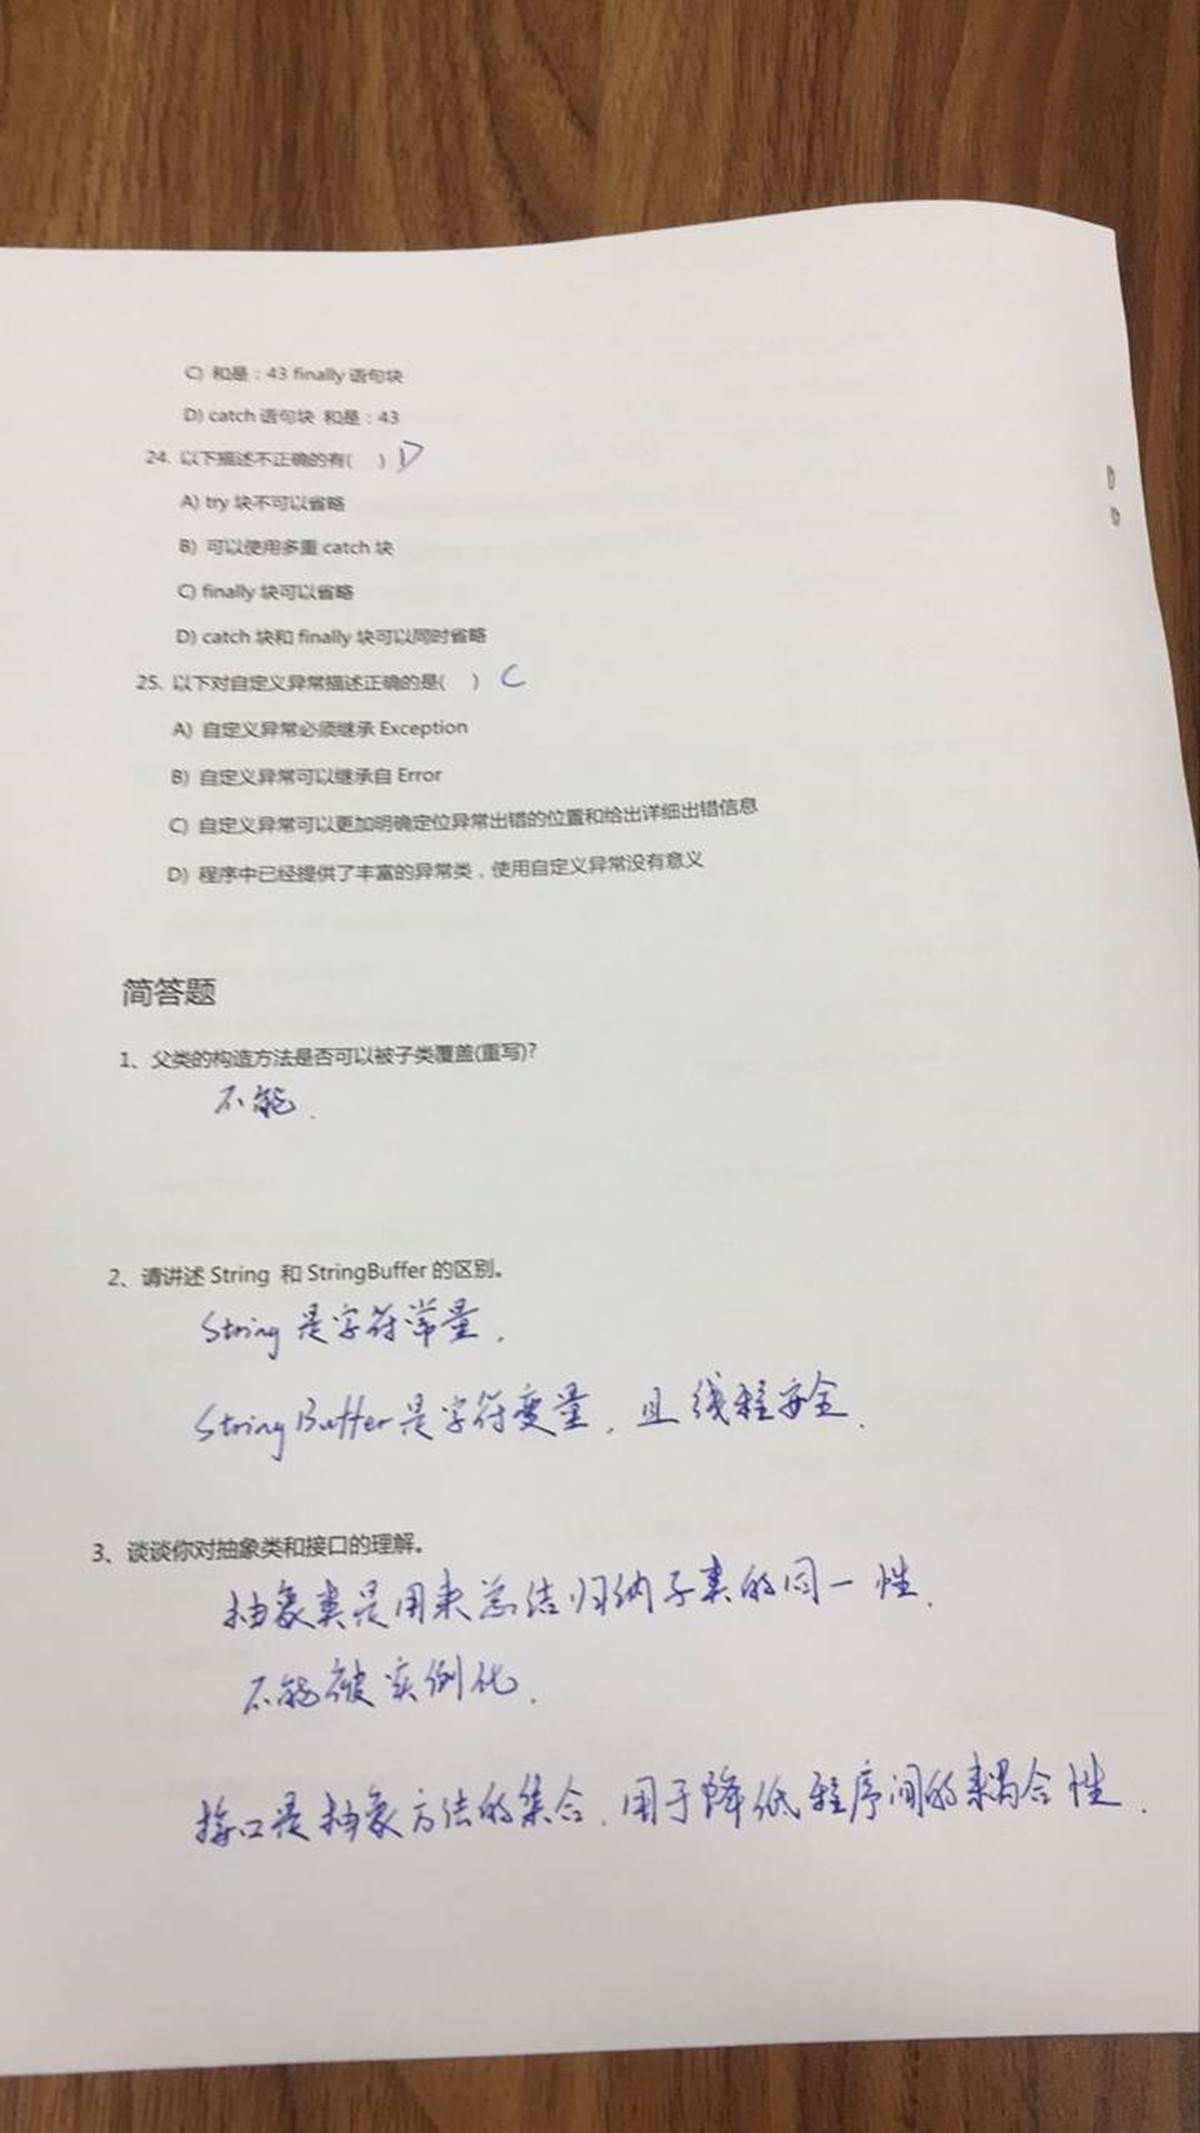 C) 和是：43 finally 语句块
D) catch 语句块 和是：43
24. 以下描述不正确的有( ) D
A) try 块不可以省略
B) 可以使用多重 catch 块
C) finally 块可以省略
D) catch 块和 finally 块可以同时省略
25. 以下对自定义异常描述正确的是( ) C
A) 自定义异常必须继承 Exception
B) 自定义异常可以继承自 Error
C) 自定义异常可以更加明确定位异常出错的位置和给出详细出错信息
D) 程序中已经提供了丰富的异常类，使用自定义异常没有意义
简答题
1、父类的构造方法是否可以被子类覆盖(重写)?
不能.
2、请讲述 String 和 StringBuffer 的区别。
String 是字符常量.
StringBuffer 是字符变量, 且线程安全.
3、谈谈你对抽象类和接口的理解。
抽象类是用来总结归纳子类的同一性.
不能被实例化.
接口是抽象方法的集合. 用于降低程序间的耦合性.